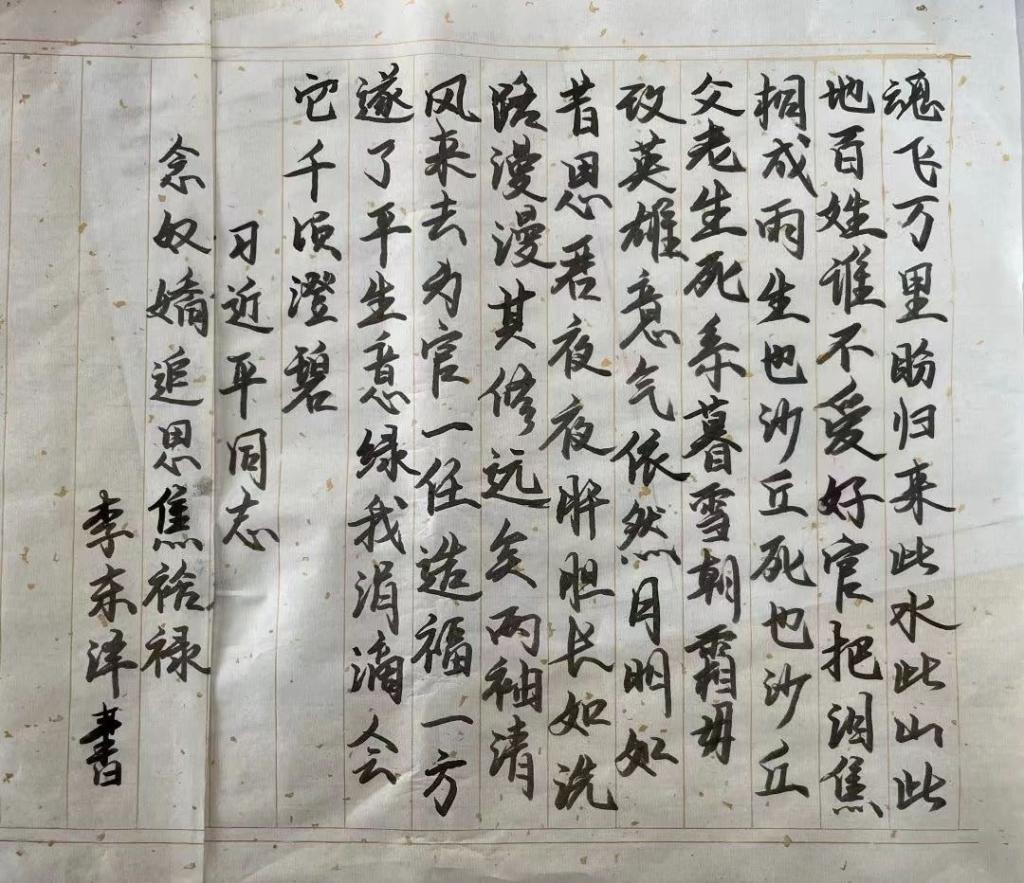 魂飞万里盼归来此水此山此
地百姓谁不爱好官把泪焦
桐成雨生也沙丘死也沙丘
父老生死系暮雪朝霜毋
改英雄意气依然月明如
昔思君夜夜肝胆长如洗
路漫漫其修远矣两袖清
风来去为官一任造福一方
遂了平生意绿我涓滴会
它千顷澄碧
习近平同志
念奴娇追思焦裕禄
李东泽书